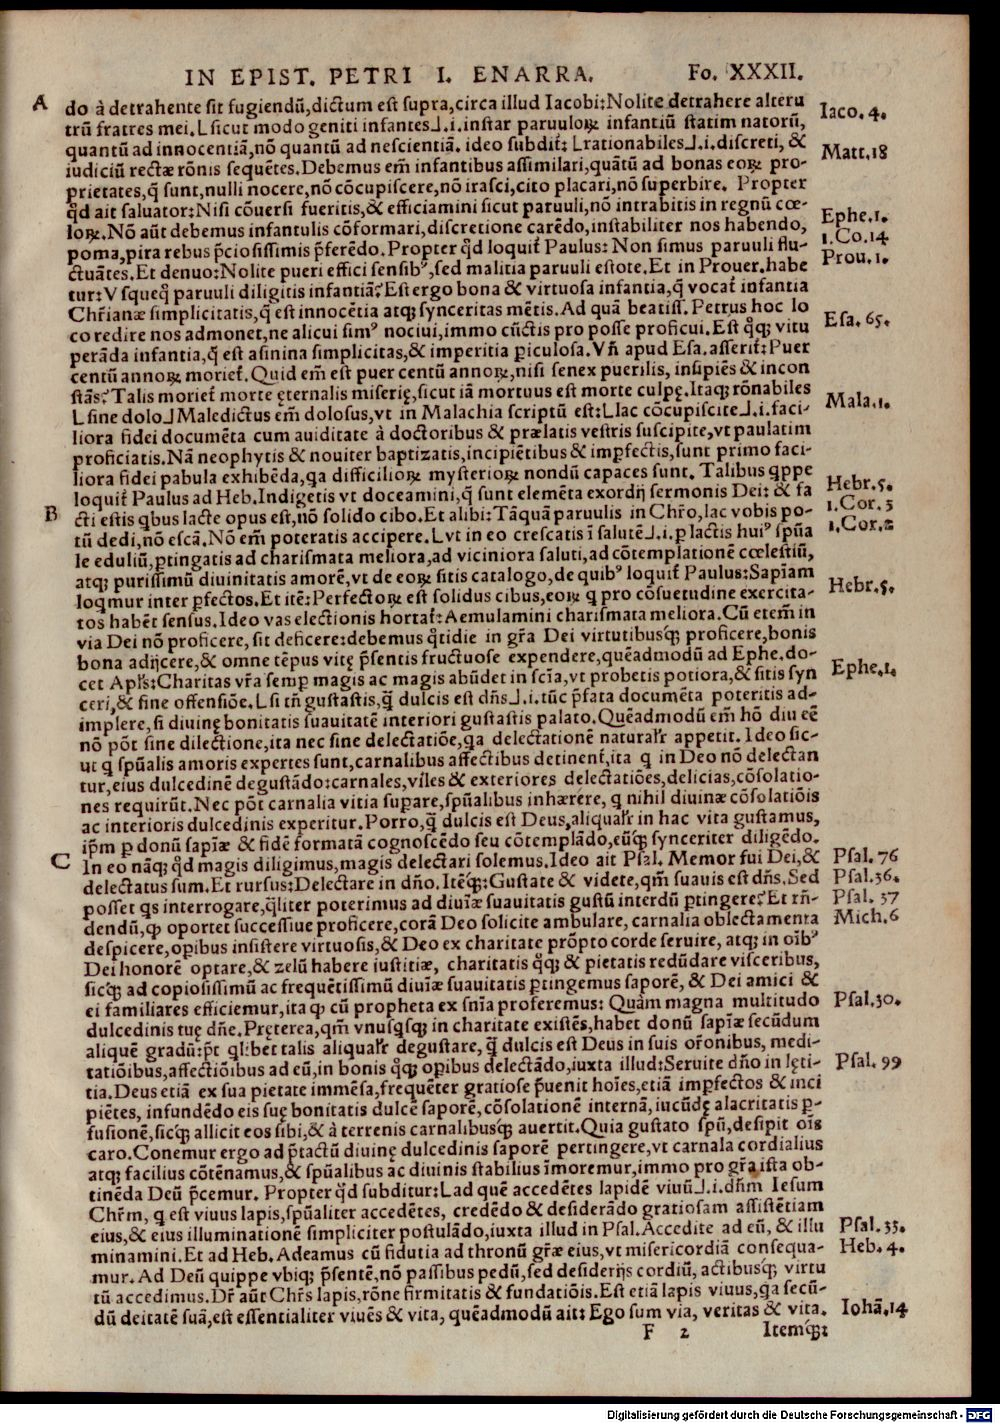 IN EPIST. PETRI I. ENARRA. Fo. XXXII.
A do à detrahente sit fugiendũ,dictum est supra,circa illud Iacobi:Nolite detrahere alteru
trũ fratres mei.⌊sicut modo geniti infantes⌋.i.instar paruuloꝝ infantiũ statim natorũ, Iaco.4.
quantũ ad innocentiã,nõ quantũ ad nescientiã. ideo subdit᷑: ⌊rationabiles⌋.i.discreti, &
iudiciũ rectæ rõnis sequẽtes.Debemus em̃ infantibus assimilari,quãtũ ad bonas eoꝝ pro- Matt.18
prietates,q̃ sunt,nulli nocere,nõ cõcupiscere,nõ irasci,cito placari,nõ superbire. Propter
qd̃ ait saluator:Nisi cõuersi fueritis,& efficiamini sicut paruuli,nõ intrabitis in regnũ cœ-
loꝝ.Nõ aũt debemus infantulis cõformari,discretione carẽdo,instabiliter nos habendo, Ephe.1.
poma,pira rebus p̃ciosissimis p̃ferẽdo.Propter qd̃ loquit᷑ Paulus: Non simus paruuli flu- 1.Co.14
ctuãtes.Et denuo:Nolite pueri effici sensibꝰ,sed malitia paruuli estote.Et in Prouer.habe Prou.1.
tur:Vsquequo᷒ paruuli diligitis infantiã?Est ergo bona & virtuosa infantia,q̃ vocat᷑ infantia
Chr̃ianæ simplicitatis,q̃ est innocẽtia atqꝫ synceritas mẽtis. Ad quã beatiss. Petrus hoc lo
co redire nos admonet,ne alicui simꝰ nociui,immo cũctis pro posse proficui.Est qͦqꝫ vitu Esa.65.
perãda infantia,q̃ est asinina simplicitas,& imperitia ꝑiculosa. Vñ apud Esa.asserit᷑: Puer
centũ annoꝝ moriet᷑.Quid em̃ est puer centũ annoꝝ,nisi senex puerilis, insipiẽs & incon
stãs?Talis moriet᷑ morte ęternalis miserię,sicut iã mortuus est morte culpę.Itaqꝫ rõnabiles
⌊sine dolo⌋Maledictus em̃ dolosus,vt in Malachia scriptũ est:⌊lac cõcupiscite⌋.i.faci- Mala.1.
liora fidei documẽta cum auiditate à doctoribus & prælatis vestris suscipite,vt paulatim
proficiatis.Nã neophytis & nouiter baptizatis,incipiẽtibus & imꝑfectis,sunt primo faci-
liora fidei pabula exhibẽda,qa difficilioꝝ mysterioꝝ nondũ capaces sunt. Talibus qppe
loquit᷑ Paulus ad Heb.Indigetis vt doceamini,q̃ sunt elemẽta exordij sermonis Dei: & fa Hebr.5.
B cti estis qbus lacte opus est,nõ solido cibo.Et alibi:Tãquã paruulis in Chr̃o,lac vobis po- 1.Cor.3
tũ dedi,nõ escã.Nõ em̃ poteratis accipere.⌊vt in eo crescatis ĩ salutẽ⌋.i.ꝑ lactis huiꝰ spũa 1.Cor.2
le eduliũ,ꝑtingatis ad charismata meliora,ad viciniora saluti,ad cõtemplationẽ cœlestiũ,
atqꝫ purissimũ diuinitatis amorẽ,vt de eoꝝ sitis catalogo,de quibꝰ loquit᷑ Paulus:Sapĩam
loqmur inter ꝑfectos.Et itẽ:Perfectoꝝ est solidus cibus,eoꝝ q pro cõsuetudine exercita- Hebr.5.
tos habẽt sensus.Ideo vas electionis hortat᷑:Aemulamini charismata meliora.Cũ etem̃ in
via Dei nõ proficere,sit deficere:debemus qͦtidie in gr̃a Dei virtutibusqꝫ proficere,bonis
bona adijcere,& omne tẽpus vitę p̃sentis fructuose expendere,quẽadmodũ ad Ephe.do-
cet Apl̃s:Charitas vr̃a semꝑ magis ac magis abũdet in scĩa,vt probetis potiora,& sitis syn Ephe.1.
ceri,& sine offensiõe.⌊si tñ gustastis,q̃ dulcis est dñs⌋.i.tũc p̃fata documẽta poteritis ad-
implere,si diuinę bonitatis suauitatẽ interiori gustastis palato.Quẽadmodũ em̃ hõ diu eẽ
nõ põt sine dilectione,ita nec sine delectatiõe,qa delectationẽ natural̃r appetit. Ideo sic-
ut q spũalis amoris expertes sunt,carnalibus affectibus detinent᷑,ita q in Deo nõ delectan
tur,eius dulcedinẽ degustãdo:carnales,viles & exteriores delectatiões,delicias,cõsolatio-
nes requirũt.Nec põt carnalia vitia suꝑare,spũalibus inhærere, q nihil diuinæ cõsolatiõis
ac interioris dulcedinis experitur.Porro,q̃ dulcis est Deus,aliqual̃r in hac vita gustamus,
ip̃m ꝑ donũ sapĩæ & fidẽ formatã cognoscẽdo seu cõtemplãdo,eũqꝫ synceriter diligẽdo.
C In eo nãqꝫ qd̃ magis diligimus,magis delectari solemus.Ideo ait Psal. Memor fui Dei,& Psal.76
delectatus sum.Et rursus:Delectare in dño.Itẽqꝫ:Gustate & videte,qm̃ suauis est dñs.Sed Psal.36.
posset qs interrogare,qͣliter poterimus ad diuĩæ suauitatis gustũ interdũ ꝑtingere?Et rñ- Psal.37
dendũ,ꝙ oportet successiue proficere,corã Deo solicite ambulare, carnalia oblectamenta Mich.6
despicere,oꝑibus insistere virtuosis,& Deo ex charitate prõpto corde seruire, atqꝫ in oĩbꝰ
Dei honorẽ optare,& zelũ habere iustitiæ, charitatis qͦqꝫ & pietatis redũdare visceribus,
sicqꝫ ad copiosissimũ ac frequẽtissimũ diuĩæ suauitatis ꝑtingemus saporẽ, & Dei amici &
ei familiares efficiemur,ita ꝙ cũ propheta ex sñia proferemus: Quàm magna multitudo Psal.30.
dulcedinis tuę dñe. Pręterea,qm̃ vnusqsqꝫ in charitate existẽs,habet donũ sapĩæ secũdum
aliquẽ gradũ:p̃t qlibet talis aliqual̃r degustare, q̃ dulcis est Deus in suis or̃onibus, medi-
tatiõibus,affectiõibus ad eũ,in bonis qͦqꝫ oꝑibus delectãdo,iuxta illud:Seruite dño in lęti- Psal.99
tia.Deus etiã ex sua pietate immẽsa,frequẽter gratiose p̃uenit hoĩes,etiã imꝑfectos & inci
piẽtes, infundẽdo eis suę bonitatis dulcẽ saporẽ,cõsolationẽ internã,iucũdę alacritatis ꝑ-
fusionẽ,sicqꝫ allicit eos sibi,& à terrenis carnalibusqꝫ auertit.Quia gustato spũ,desipit oĩs
caro.Conemur ergo ad p̃tactũ diuinę dulcedinis saporẽ pertingere,vt carnala cordialius
atqꝫ facilius cõtẽnamus,& spũalibus ac diuinis stabilius ĩmoremur,immo pro gr̃a ista ob-
tinẽda Deũ p̃cemur. Propter qd̃ subditur:⌊ad quẽ accedẽtes lapidẽ viuũ⌋.i.dñm Iesum
Chr̃m, q est viuus lapis,spũaliter accedẽtes, credẽdo & desiderãdo gratiosam assistẽtiam
eius,& eius illuminationẽ simpliciter postulãdo,iuxta illud in Psal.Accedite ad eũ, & illu Psal.33.
minamini.Et ad Heb.Adeamus cũ fidutia ad thronũ gr̃æ eius,vt misericordiã consequa- Heb.4.
mur. Ad Deũ quippe vbiqꝫ p̃sentẽ,nõ passibus pedũ,sed desiderijs cordiũ, actibusqꝫ virtu
tũ accedimus. Dr̃ aũt Chr̃s lapis,rõne firmitatis & fundatiõis. Est etiã lapis viuus,qa secũ-
dũ deitatẽ suã,est essentialiter viuẽs & vita, quẽadmodũ ait: Ego sum via, veritas & vita. Iohã.14
F 2 Itemqꝫ:
Digitalisierung gefördert durch die Deutsche Forschungsgemeinschaft - DFG